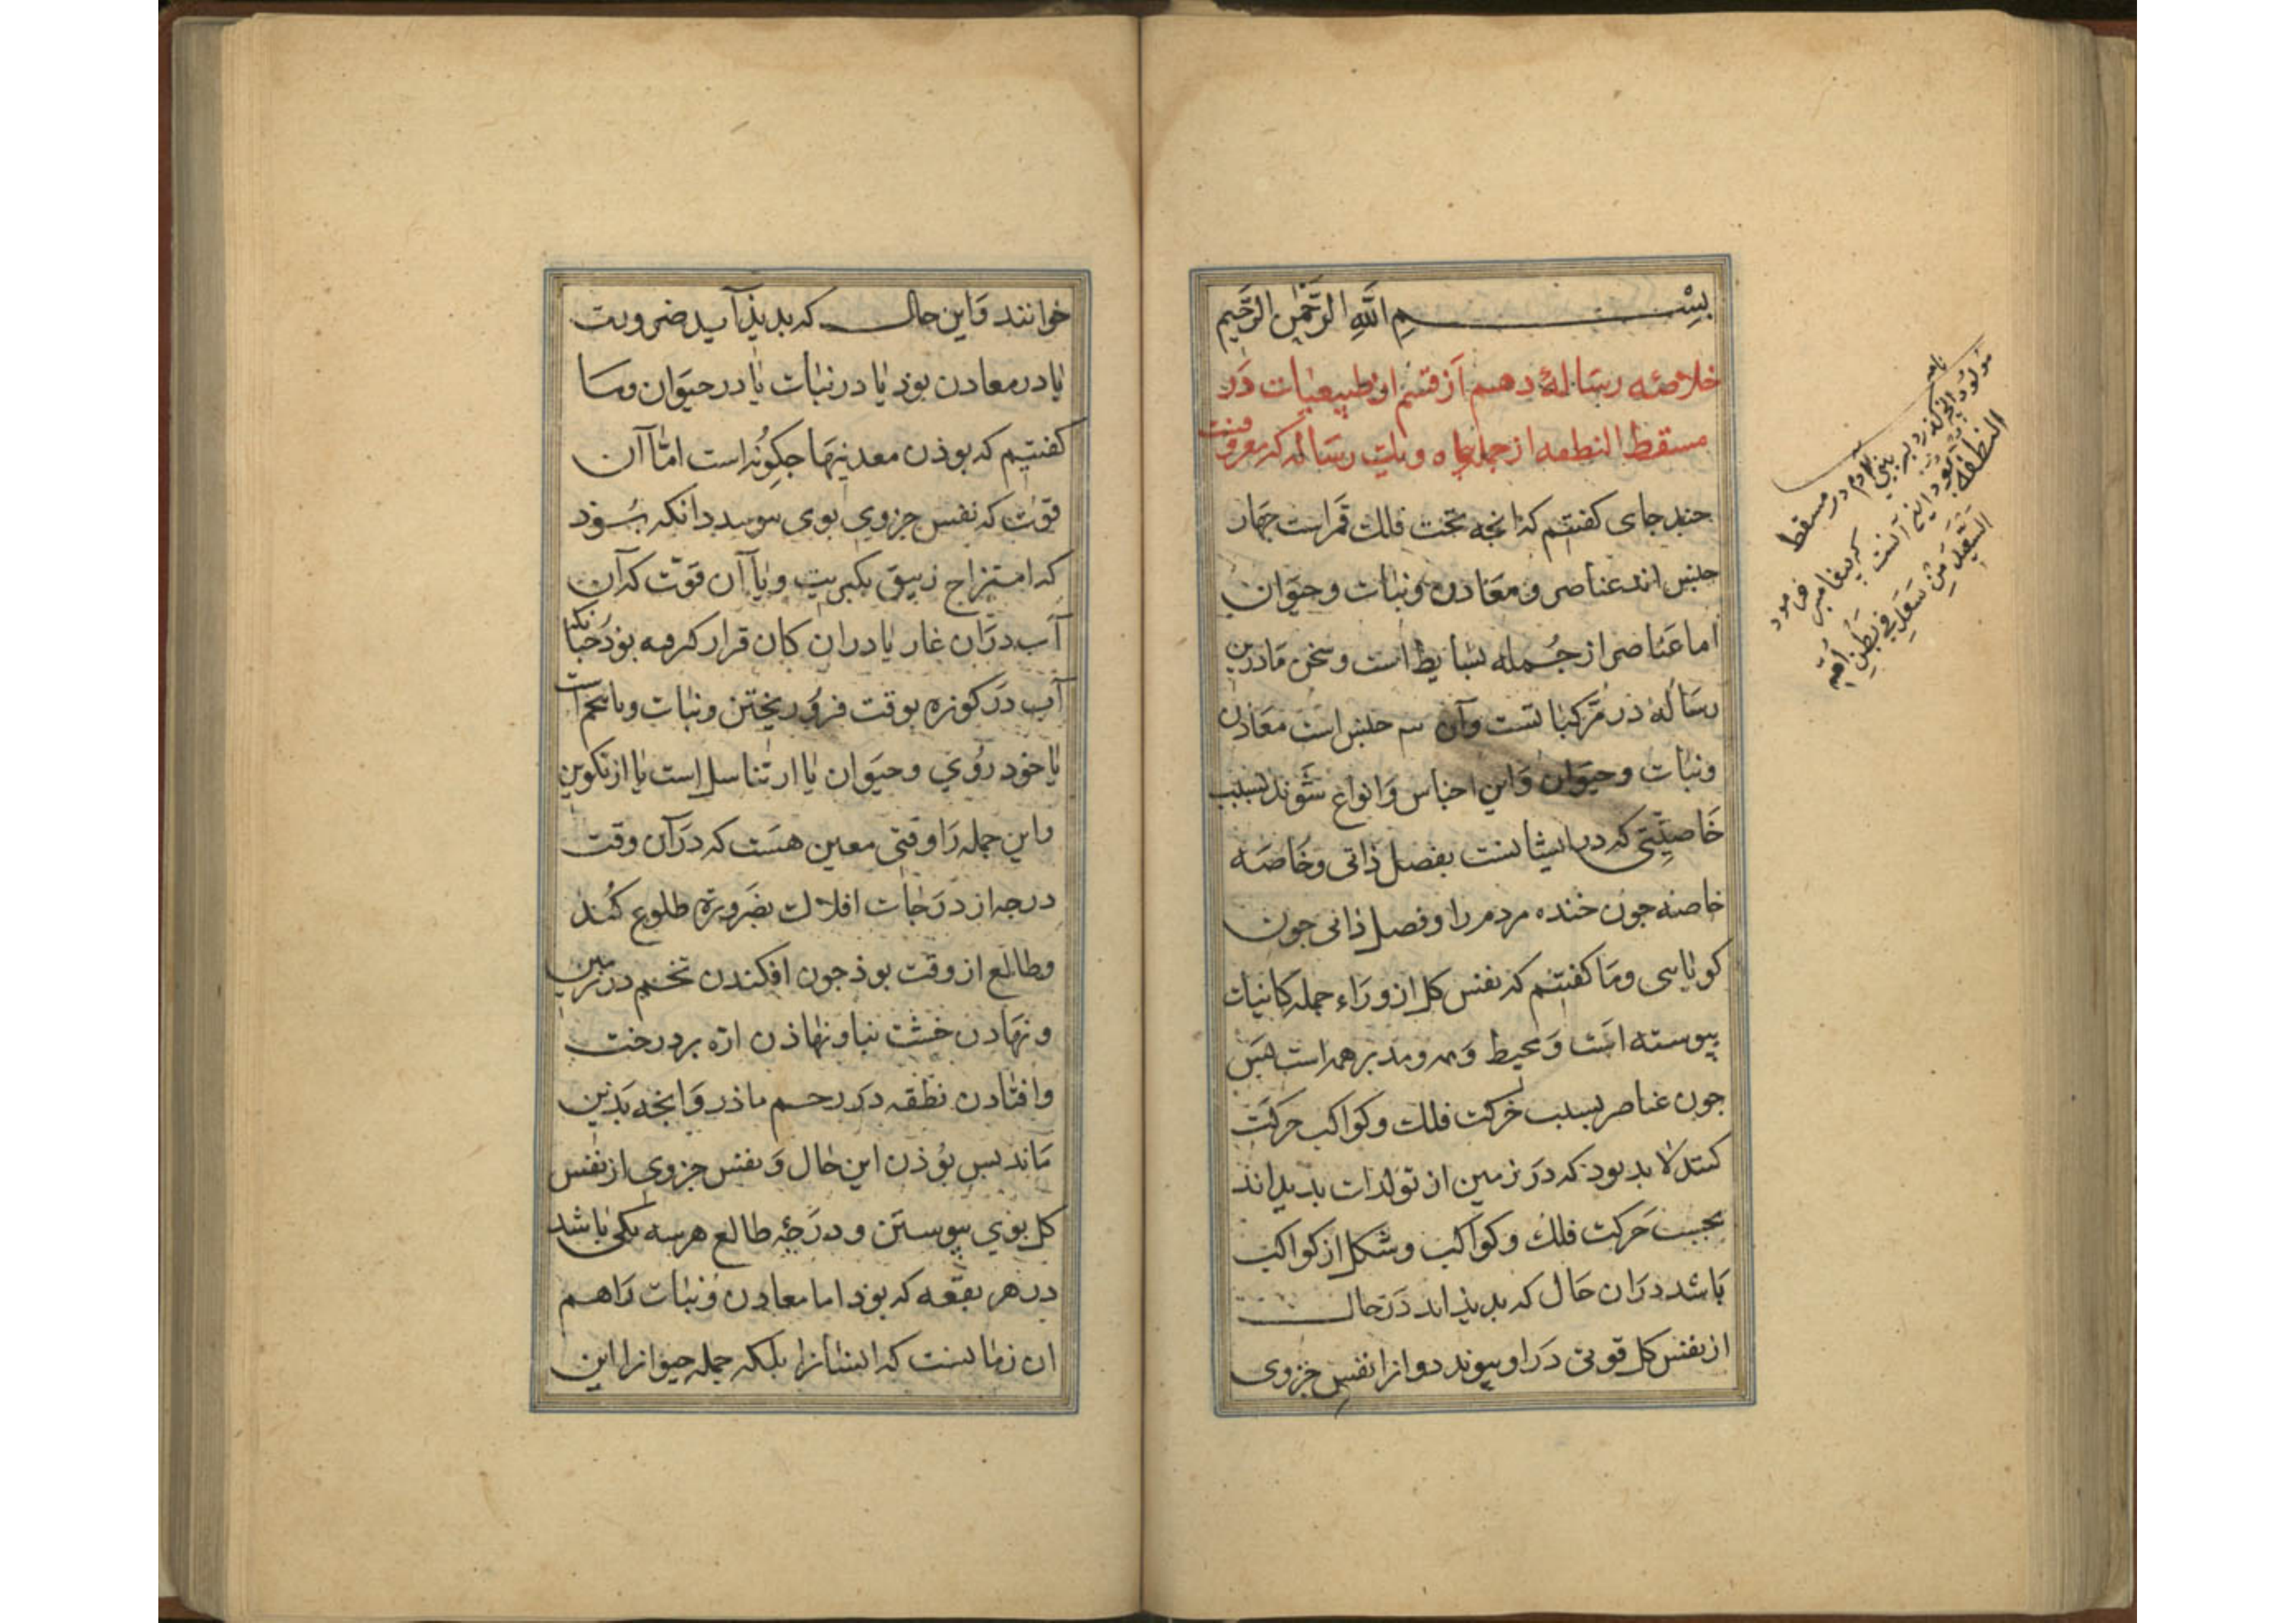 بِسْمِ اللَّهِ الرَّحْمٰنِ الرَّحِيمِ
خلاصه رسالهٔ دهم از قسم از طبیعیات در
مسقط النطفه از جمله پنجاه ویک رساله که معروفست
جند جای کفتیم که انجه تحت فلک قمر است جهار
جنس اند عناصر و معادن و نبات و حیوان
اما عناصر از جمله بسایط است و سخن ما درین
رساله در مرکباتست وآن سه جنس است معادن
ونبات وحیوان واین اجناس وانواع شوند بسبب
خاصیتی که در ایشانست بفصل ذاتی وخاصه
خاصه جون خنده مردم را وفصل ذاتی جون
کویایی وما کفتیم که نفس کل از وراء جمله کاینات
پیوسته است ومحیط و ومدبر همه است پس
جون عناصر بسبب حرکت فلک وکواکب حرکت
کنند لا بد بود که در زمین از تولدات بدید اند
بحسب حرکت فلک وکواکب وشکل از کواکب
باشد دران حال که بدیذ اند در حال
از نفس کل قوتی در او پیوندد وانرا نفس جزوی
مولود
در مسقط
النطفه
که پیغامبر فرمود
السَّعِيدُ مَنْ سَعِدَ فِي بَطْنِ أُمِّهِ
خوانند واین حال که بدیذ آید ضرورت
یا در معادن بوذ یا در نبات یا در حیوان وما
کفتیم که بوذن معدنیها جکونه است اما آن
قوت که نفس جزوی بوی بیوندد انکه بوذ
که امتزاج زیبق بکبریت ویا آن قوت که آن
آب دران غار یا دران کان قرار کرفته بوذ جنانکه
آب در کوزه بوقت فرو ریختن ونبات ویا تخم است
یا خود روی وحیوان یا از تناسل است یا از تکوین
واین جمله را وقتی معین هست که در آن وقت
درجه از درجات افلاک بضرورة طلوع کند
وطالع از وقت بوذ جون افکندن تخم در زمین
ونهادن خشت بنا ونهاذن اره بر درخت
وافتادن نطفه در رحم ماذر وانجه بدین
ماند بس بوذن این حال ونفس جزوی از نفس
کل بوی پیوستن ودرجهٔ طالع هرسه یکی باشد
در هر بقعه که بوذ اما معادن ونبات را هم
ان زمانست که ایشانرا بلکه جمله حیوانرا این